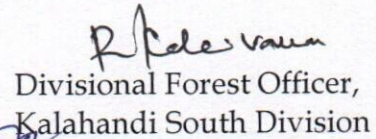 Divisional Forest Officer,
Kalahandi South Division